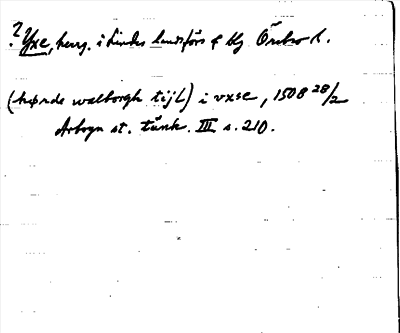 ? Yxe, herrg. i Lindes landsförs o blg Örebro l.
(hørde walborgh tijl) i vxse, 1508 28/2
Arboga st. tänk. III s. 210.